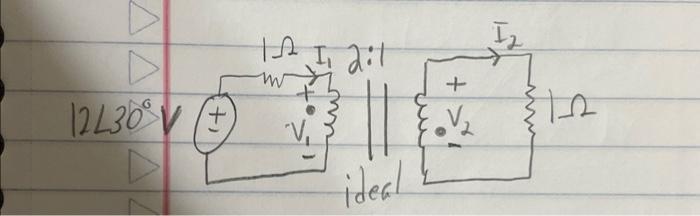 1Ω I₁ 2:1 I₂
12∠30° V + - + V₁ - + V₂ - 1Ω
ideal